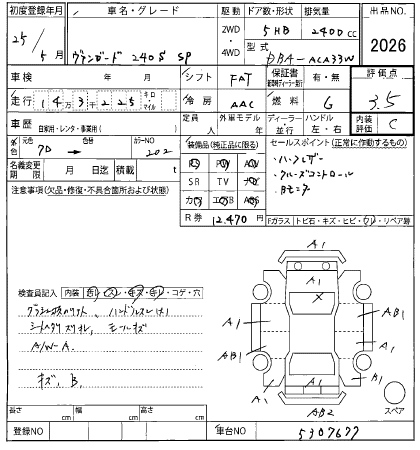 初度登録年月 車名・グレード 駆動 ドア数・形状 排気量 出品NO.
25年 5月 ヴァンガード 240S SP 2WD・4WD 5HB 2400cc 2026
型式 DBA-ACA33W
車検 年 月 シフト FAT 保証書 有・無 評価点
走行 143千225 キロ・マイル 冷房 AAC 燃料 G 3.5
車歴 自家用・レンタ・事業用( ) 定員 人 外車モデル 年 ディーラー・並行 ハンドル 左・右 内装評価 C
外色 元色 色替 カラーNO 202
装備品(純正品に限る) セールスポイント(正常に作動するもの)
名義変更期限 月 日迄 積載 t
PS PW
SR TV ナビ
カワ エアB ABS
ハーフレザー
クルーズコントロール
Bモニタ
注意事項(欠品・修復・不具合箇所および状態)
R券 12,470円
Fガラス トビ石・キズ・ヒビ・ワレ・リペア跡
検査員記入 内装 コゲ・穴
ハンドルスレ(大)
モールキズ
A/W-A
キズ、B、
A1
A1
A1
AB1
AB1
A1
A1
A1
B1
AB2
スペア
長さ cm 幅 cm 高さ cm
登録NO 車台NO 5307677